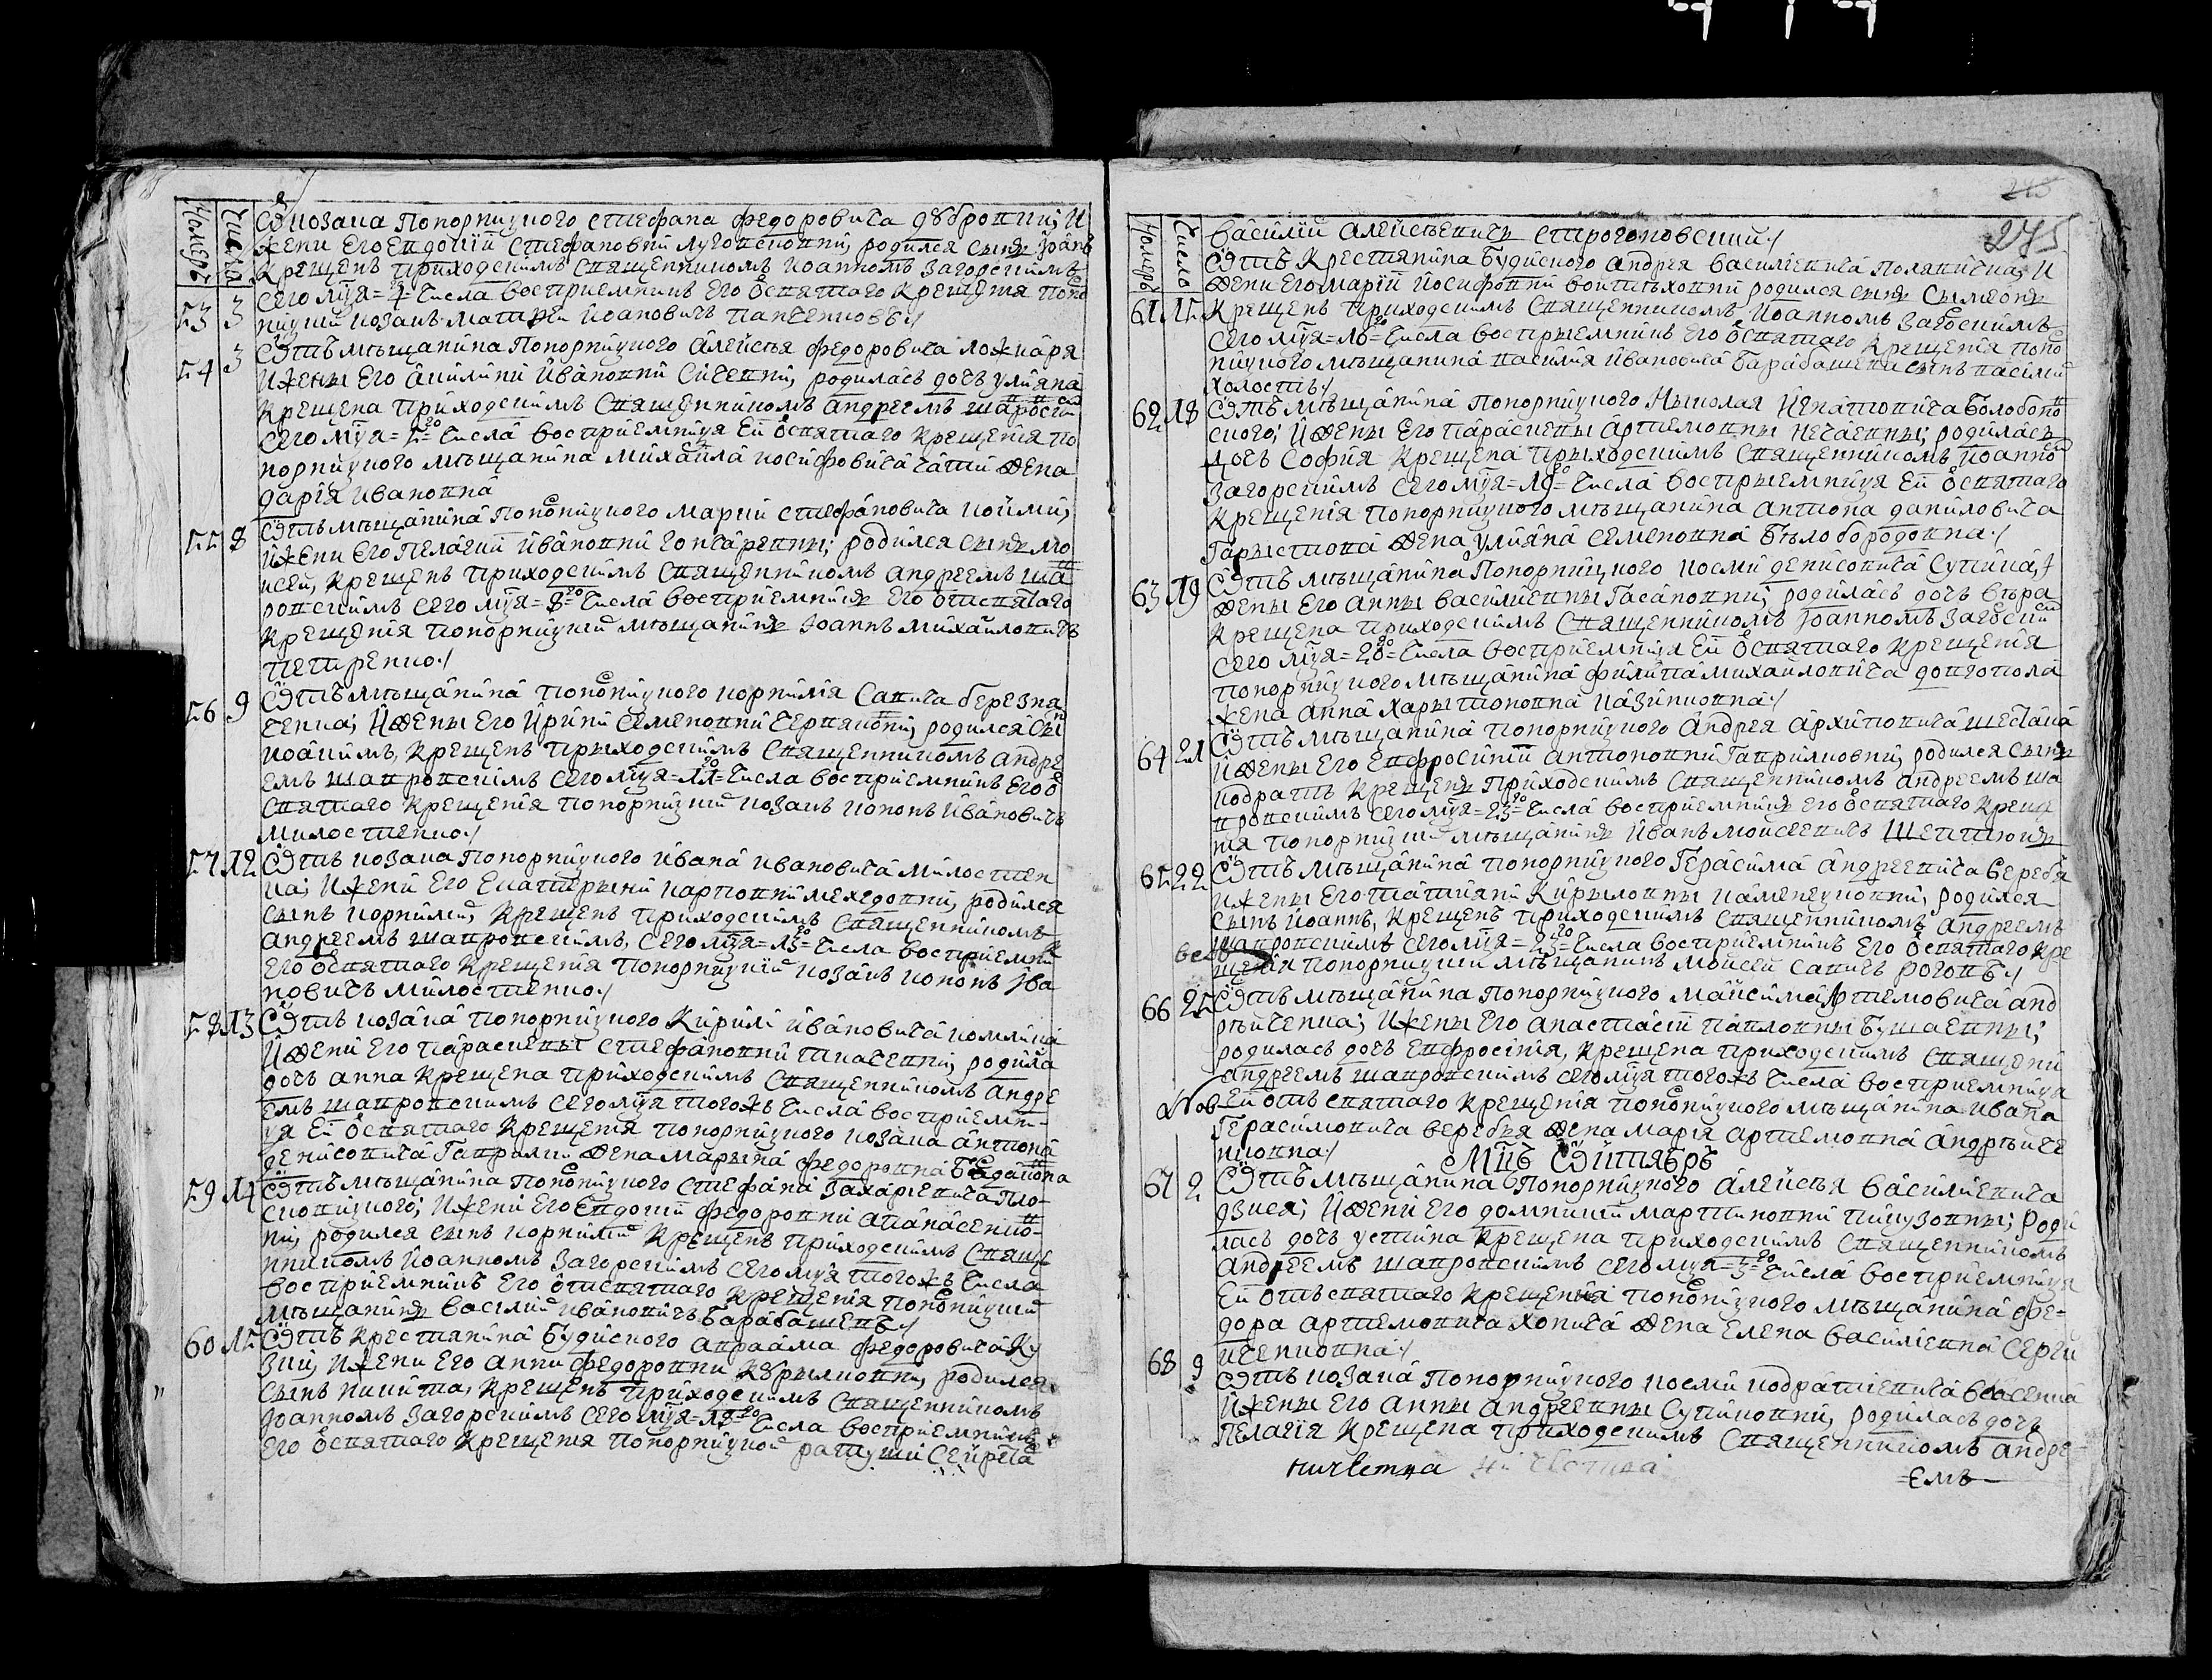 Номеръ Число
Ѿ козака понорницкого стефана федоровича дѹбровки; и
жени его евдокіи стефановни луговсковни, родился сынъ іоаннъ
крещенъ приходскимъ священникомъ иоанномъ загорскимъ
53 3 сего мця =4го= числа восприемникъ его ѿ святаго крещенія поно
рницкий козакъ матфеи иоановичъ панченковъ
54 3 Ѿтъ мѣщанина понорницкого алексѣя федоровича ложкаря
и жены его акилини ивановни сиченни, родилась дочь улияна
крещена приходскимъ священникомъ андреемъ шавровски
сего мця = го= числа восприемница ей ѿ святаго крещенія по
норницкого мѣщанина михайла иосифовича жена
дарія ивановна
55 8 Ѿтъ мѣщанина понорницкого марки стефановича
и жени его пелагіи ивановни гончаренны; родился сынъ мо
исей, крещенъ приходскимъ священникомъ андреемъ ша
вровскимъ сего мця =8го= числа восприемникъ его ѿт святаго
крещенія понорницкий мѣщанинъ іоаннъ михайловичъ
петренко
56 9 Ѿтъ мѣщанина понорницкого корнилія савича березна
ченка; и жены его ирини семеновни черняковни, родился сын
иоакимъ, крещенъ прыходскимъ священникомъ андре
емъ шавровскимъ сего мця =11го= числа восприемникъ его ѿ
святаго крещенія понорницкий козакъ кононъ ивановичъ
милоственко
57 12 Ѿтъ козака понорницкого ивана ивановича милоствен
ка; и жени его екатерыни карповни мехедовни, родился
сынъ корнилий, крещенъ приходскимъ священникомъ
андреемъ шавровскимъ, сего мця =13го= числа восприемник
его ѿ святаго крещенія понорницкий козакъ кононъ ива
новичъ милоственко
58 13 Ѿтъ козака понорницкого кирили ивановича
и жени его параскевы стефановни ткаченни, родила
дочь анна крещена приходскимъ священникомъ андре
емъ шавровскимъ сего мця того жъ числа восприемни-
ца ей ѿ святаго крещенія понорницкого козака антона
денисовича гаврилки жена марына федоровна
59 14 Ѿтъ мѣщанина понорницкого стефана захаріевича пло-
сконицкого; и жени его евдокіи федоровни апанасенко-
вни, родился сынъ корнилий крещенъ приходскимъ свяще
нникомъ иоанномъ загорскимъ сего мця того жъ числа
восприемникъ его ѿт святаго крещенія понорницкий
мѣщанинъ василий ивановичъ барабашевъ
60 15 Ѿтъ крестянина будиского авраама федоровича ку
зки, и жени его анни федоровни кѹрылковни, родился
сынъ никита, крещенъ приходскимъ священникомъ
иоанномъ загорскимъ сего мця =18го= числа восприемникъ
его ѿ святаго крещенія понорницкой ратуши секрета
245
Номеръ Число
василій алексѣевичъ строгоновский
Ѿтъ крестянина будиского андрея василиевича полянички, и
жени его маріи иосифовни войтиховни родился сынъ сымеонъ
61 15 крещенъ приходскимъ священникомъ иоанномъ загорскимъ
сего мця =16го= числа восприемникъ его ѿ святаго крещенія поно
рницкого мѣщанина василия ивановича барабашева сынъ василий
холостъ
62 18 Ѿтъ мѣщанина понорницкого николая игнатовича
ского; и жены его параскевы артемовны нечаевны; родилась
дочь софия крещена прыходскимъ священникомъ иоанно
загорскимъ сего мця =19го= числа восприемница ей ѿ святаго
крещенія понорницкого мѣщанина антона даниловича
жена улияна семеновна бѣлобородовна
63 19 Ѿтъ мѣщанина понорницкого космы денисовича супика, и
жены его анны василиевны гасановни, родилась дочь вѣра
крещена приходскимъ священникомъ иоанномъ загорски
сего мця =20го= числа восприемница ей ѿ святаго крещенія
понорницкого мѣщанина филипа михайловича довгопола
жена анна харытоновна казинковна
64 21 Ѿтъ мѣщанина понорницкого андрея архиповича шестака
и жены его евфросиніи антоновни гаврилковни, родился сынъ
кодратъ крещенъ приходскимъ священникомъ андреемъ ша
вровскимъ сего мця =23го= числа восприемникъ его ѿ святаго креще
ния понорницкий мѣщанинъ иванъ моисеевичъ
65 22 Ѿтъ мѣщанина понорницкого герасима андреевича веребя
и жены его татияни кирыловны каменецковни, родился
сынъ иоаннъ, крещенъ приходскимъ священникомъ андреемъ
шавровскимъ сего мця =23го= числа восприемникъ его ѿ святаго кре
щения понорницкий мѣщанинъ моисей савичъ роговъ
66 25 Ѿтъ мѣщанина понорницкого максима артемовича анд
рѣйченка; и жены его анастасіи павловны бушаевны;
родилась дочь евфросинія, крещена приходскимъ священни
андреемъ шавровскимъ сего мця того жъ числа восприемница
ей ѿтъ святаго крещенія понорницкого мѣщанина ивана
герасимовича веребья жена марія артемовна андрѣйче
нковна
Мцъ Ѿктябръ
67 2 Ѿтъ мѣщанина понорницкого алексѣя василиевича
дзиси; и жени его домникіи мартиновни пикузовны; роди
лась дочь устина крещена приходскимъ священникомъ
андреемъ шавровскимъ сего мця =5го= числа восприемница
ей ѿтъ святаго крещенія понорницкого мѣщанина фе-
дора артемовича ховича жена елена василиевна серги
иченковна
68 9 Ѿтъ козака понорницкого космы кодратіевича
и жены его анны андреевны супиковни, родилась дочь
пелагія крещена приходскимъ священникомъ андре-
=емъ